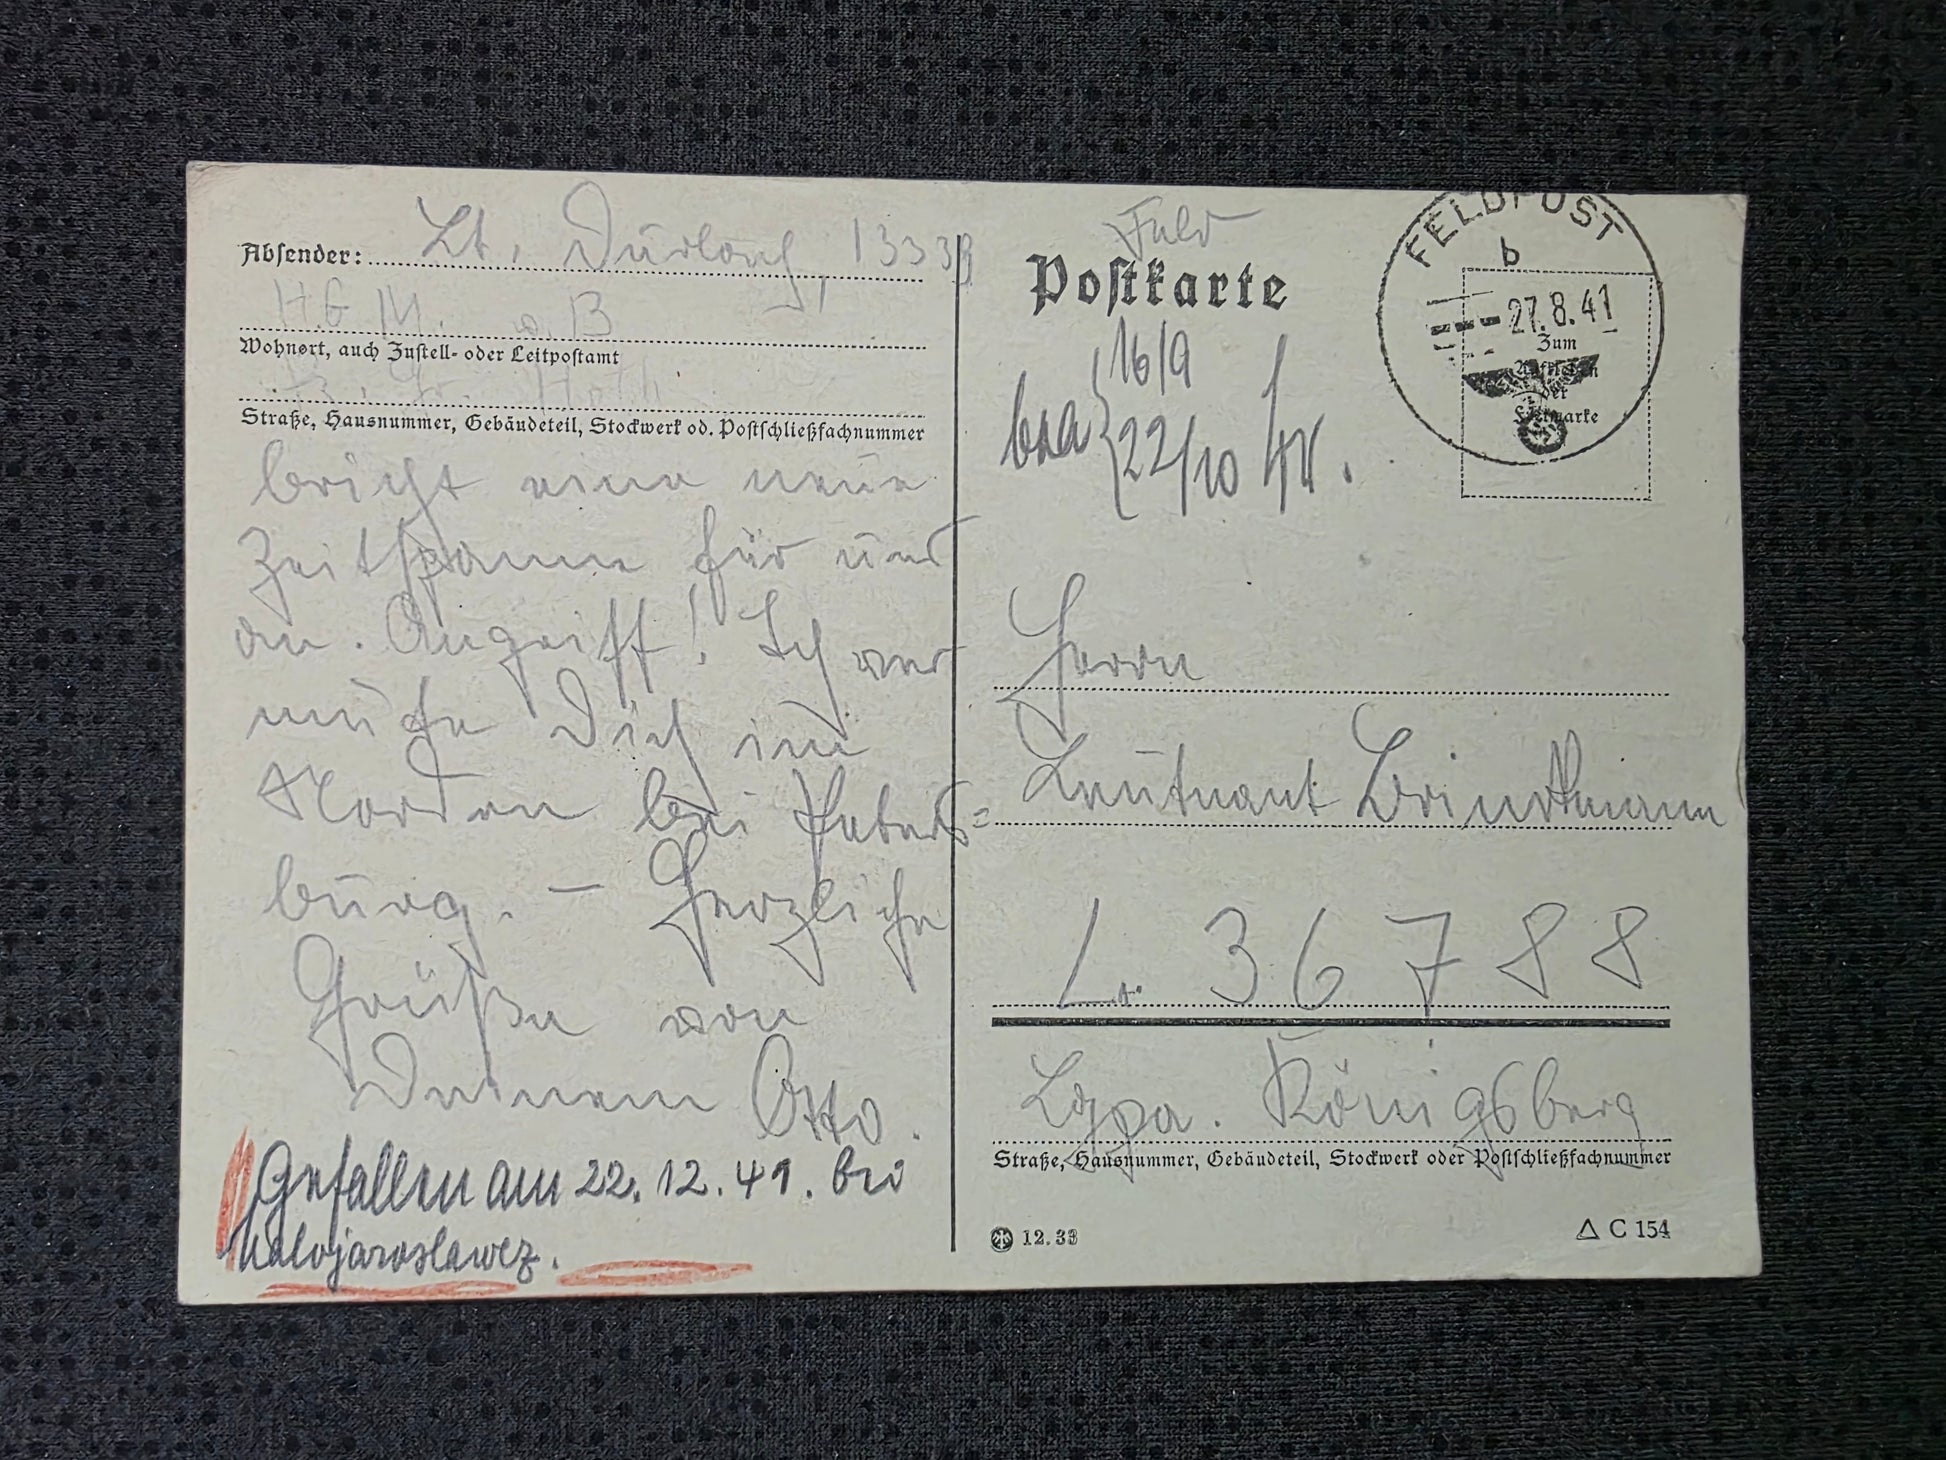 Absender: Lt. Dürlach, 13339
H.G.M. a. B
Wohnort, auch Zustell- oder Leitpostamt
Straße, Hausnummer, Gebäudeteil, Stockwerk od. Postschließfachnummer
bricht eine neue
Zeitspanne für uns
an. Angriff! Ich ver
mute Dich im
Norden bei Peters=
burg. – Herzliche
Grüße von
Deinem Otto.
Gefallen am 22.12.41. bei
Malojaroslawez.
Feld
Postkarte
FELDPOST
b
27.8.41
Zum
Aufkleben
der
Freimarke
16/9
22/10
Herrn
Leutnant Brinkmann
L. 36788
Lgpa. Königsberg
Straße, Hausnummer, Gebäudeteil, Stockwerk oder Postschließfachnummer
12.39
C 154